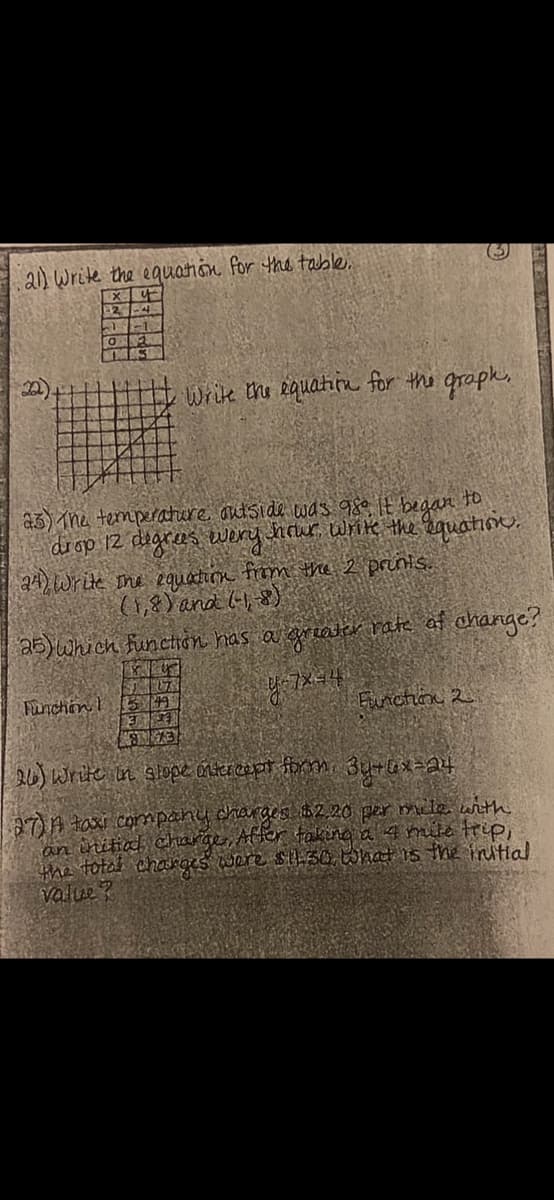 3
21) Write the equation for the table.
x y
-2 -4
-1 -1
0 2
1 5
22) Write the equation for the graph.
23) The temperature outside was 98°. It began to
drop 12 degrees every hour. Write the equation.
24) Write the equation from the 2 points.
(1,8) and (-1,-8)
25) Which function has a greater rate of change?
x y
1 17
Function 1 5 49
3
8 73
y-7x=4
Function 2
26) Write in slope intercept form. 3y+6x=24
27) A taxi company charges $2.20 per mile with
an initial charge, After taking a 4 mile trip,
the total charges were $11.30, What is the initial
value?